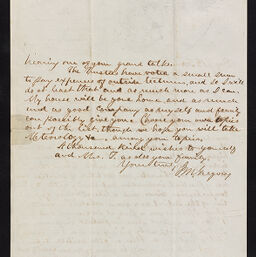 hearing one of your grand talks.
The Trustees have voted a small sum
to pay expenses of outside lectures, and so I will
do at least that and as much more as I can.
My house will be your home and as much
and as good company as myself and family
can possibly give you. Choose your own topics
out of the list, though we hope you will take
Meteorology &c. among your topics.
A thousand kind wishes to yourself
and Mrs. T. as also your family.
Yours truly,